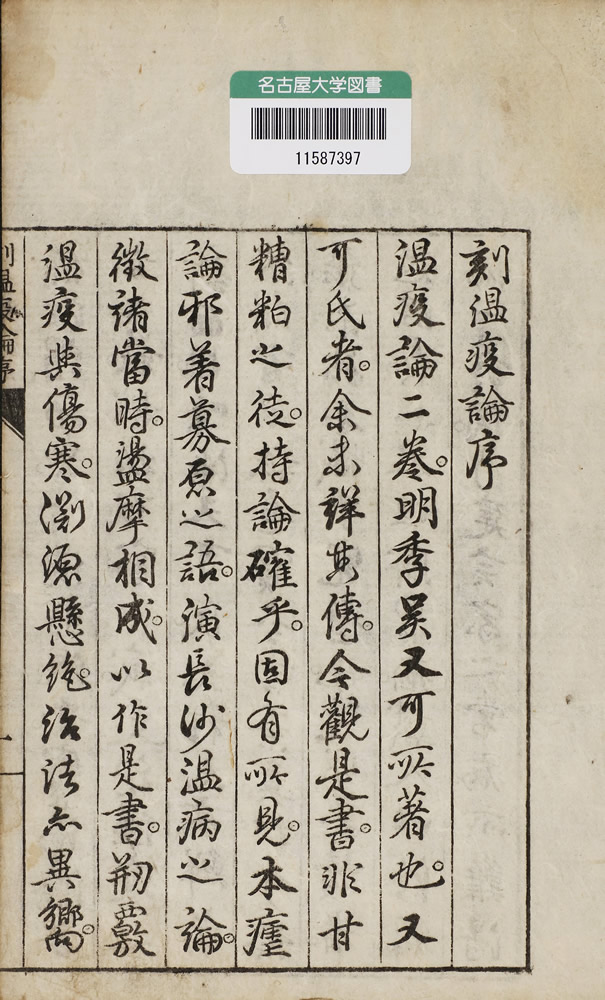 名古屋大学図書
11587397
刻温疫論序
温疫論二卷。明季吳又可所著也。又
可氏者。余未詳其傳。今觀是書。非甘
糟粕之徒。持論確乎。固有所見。本瘧
論邪著募原之語。演長沙温病之論。
徵諸當時。盪摩相成。以作是書。剏覈
温疫與傷寒。淵源懸絶。治法亦異嚮。
刻温疫論序
一